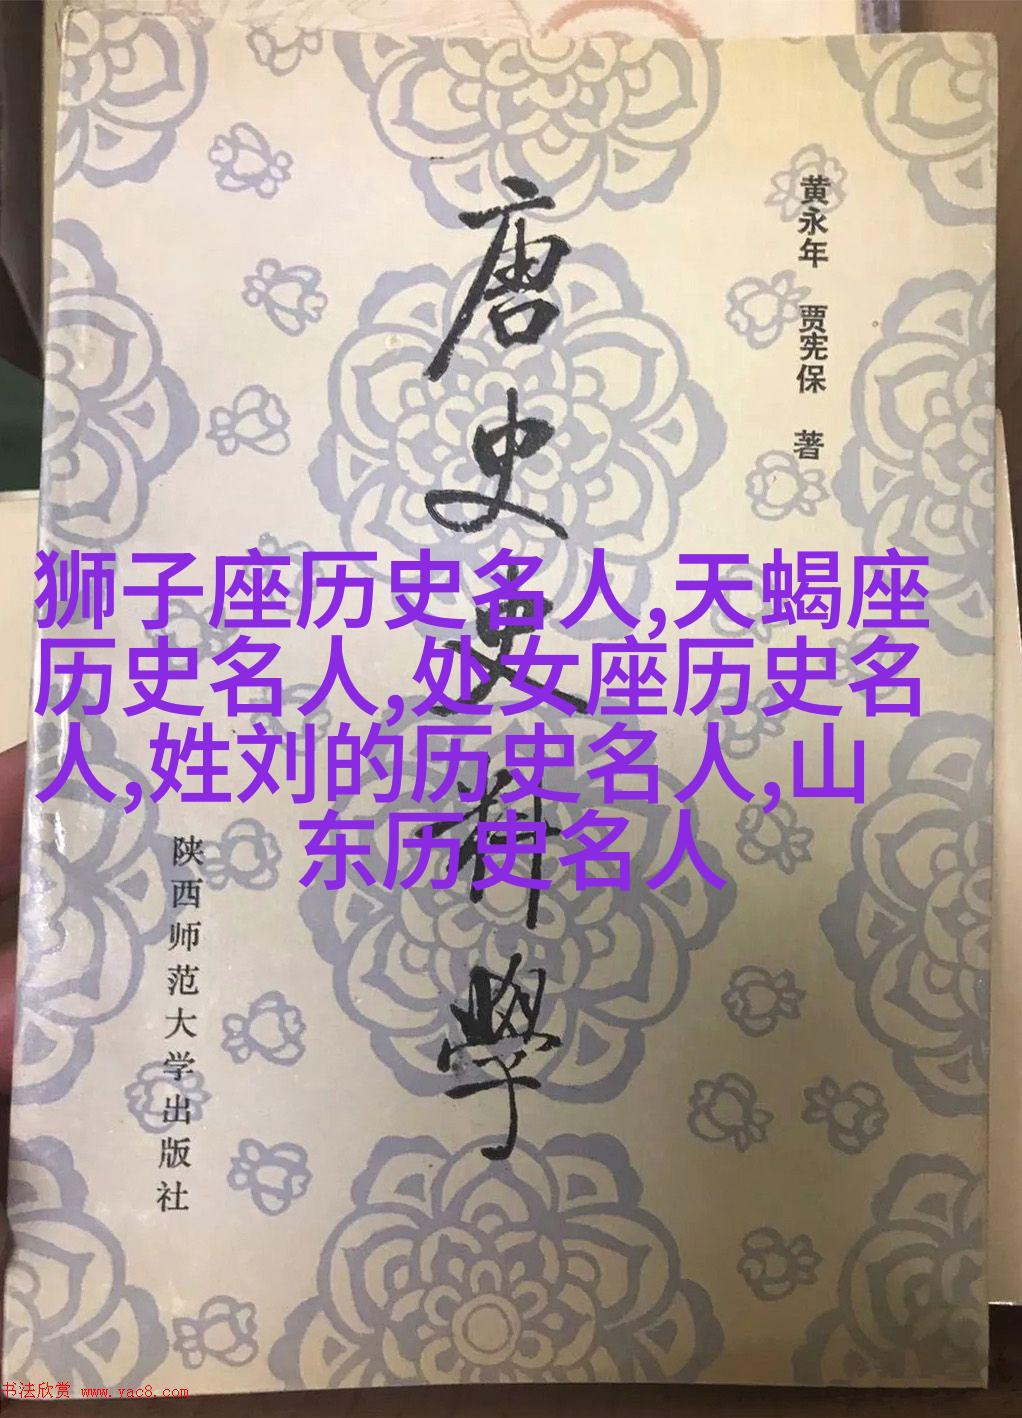 黄永年 贾宪保 著
唐史史料學
狮子座历史名人,天蝎座
历史名人,处女座历史名
人,姓刘的历史名人,山
东历史名人
陕西师范大学出版社
书法欣赏 www.yac8.com